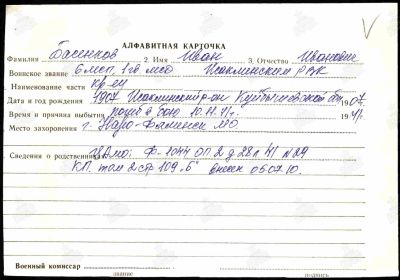 АЛФАВИТНАЯ КАРТОЧКА
Фамилия Басенков 2. Имя Иван 3. Отчество Иванович
Воинское звание 6 мсп, 1 гв мсд Исаклинским РВК
Наименование части кр-ец
Дата и год рождения 1907 Исаклинский р-он Куйбышевской обл 1907
Время и причина выбытия погиб в бою 10.11.41г. 1941
Место захоронения г. Наро-Фоминск МО
Сведения о родственниках ЦАМО: ф-1044 оп 2 д 28 л 41 №29
КП. том 2 стр 109 "б" внесен 05.07.10.
Военный комиссар
звание
подпись